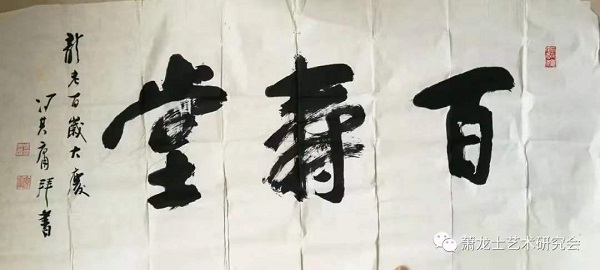 百壽堂
龍老百歲大慶
冯其庸拜書
萧龙士艺术研究会